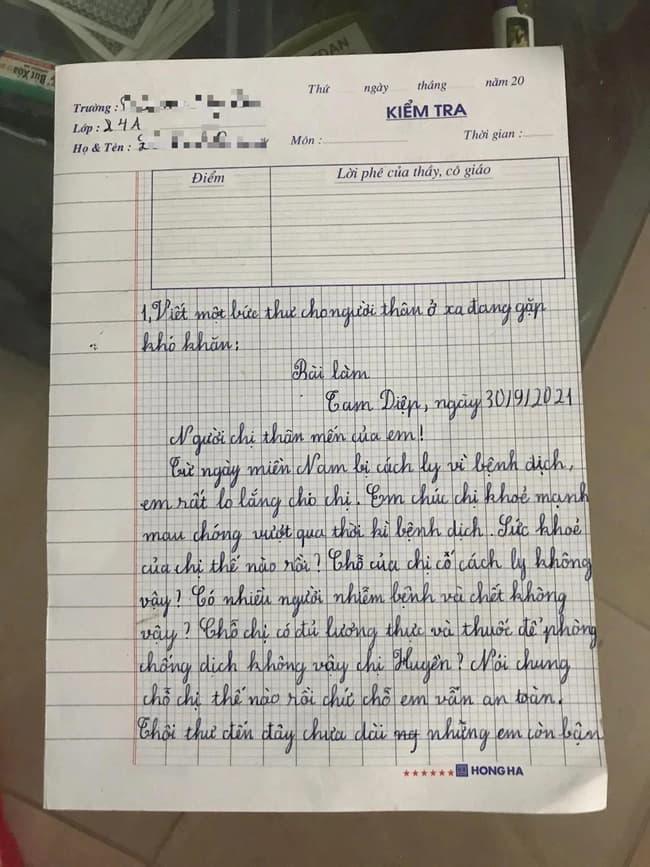 Bút Xóa
Thứ ngày tháng năm 20
KIỂM TRA
Trường :
Lớp : 24A
Họ & Tên :
Môn : Thời gian :
Điểm
Lời phê của thầy, cô giáo
1, Viết một bức thư cho người thân ở xa đang gặp
khó khăn:
Bài làm
Tam Diệp, ngày 30/9/2021
Người chị thân mến của em!
Từ ngày miền Nam bi cách ly vì bệnh dịch,
em rất lo lắng cho chị. Em chúc chị khoẻ mạnh
mau chóng vượt qua thời kì bệnh dịch. Sức khoẻ
của chị thế nào rồi? Chỗ của chị cố cách ly không
vậy? Có nhiều người nhiễm bệnh và chết không
vây? Chỗ chị có đủ lương thực và thuốc để phòng
chống dịch không vậy chị Huyền? Nói chung
chỗ chị thế nào rồi chứ chỗ em vẫn an toàn.
Thôi thư đến đây chưa dài ng những em còn bận
HONG HA